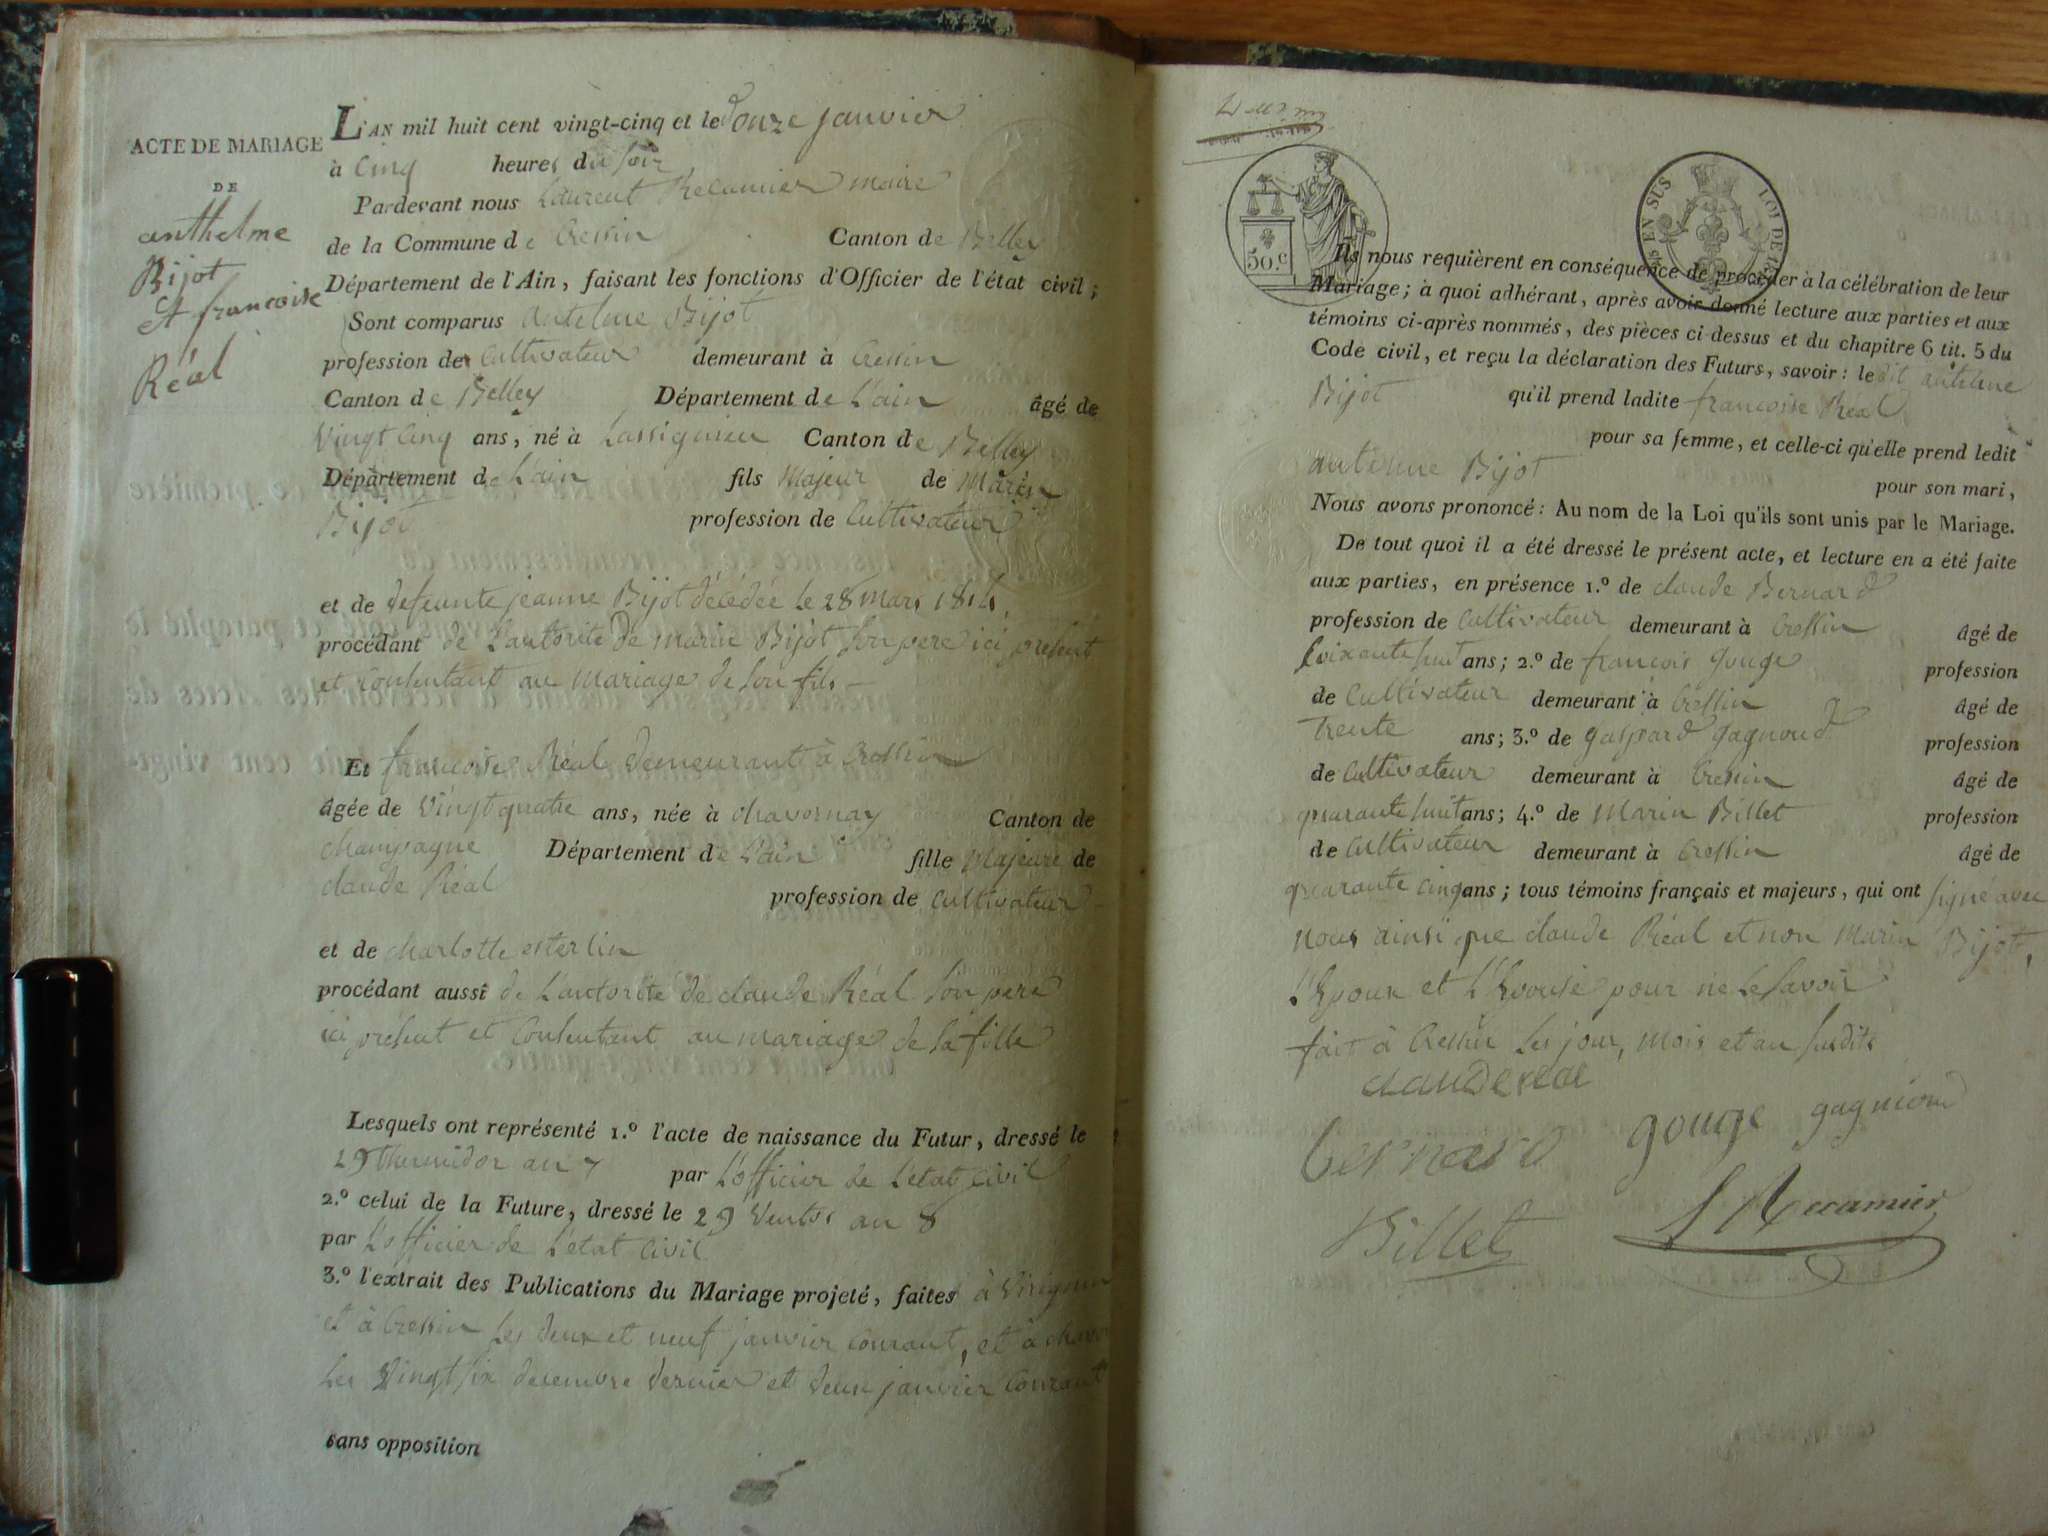 ACTE DE MARIAGE
DE
anthelme
Bijot
Et francoise
Réal
L'AN mil huit cent vingt-cinq et le douze janvier
à Cinq heures du soir
Pardevant nous Laurent Recamier maire
de la Commune de Cressin Canton de Belley
Département de l'Ain, faisant les fonctions d'Officier de l'état civil;
Sont comparus antelme Bijot
profession de Cultivateur demeurant à Cressin
Canton de Belley Département de L'ain âgé de
Vingt Cinq ans, né à Lassignieu Canton de Belley
Département de L'ain fils Majeur de Marin
Bijot profession de Cultivateur
et de defeunte jeanne Bijot décédée le 28 mars 1814.
procédant de L'autorité de marin Bijot son pere ici présent
et Consentant au mariage de son fils
Et francoise Réal demeurant à Cressin
âgée de Vingt quatre ans, née à chavornay Canton de
champagne Département de L'ain fille Majeure de
claude Réal profession de Cultivateur
et de charlotte esterlin
procédant aussi de L'autorité de claude Réal son pere
ici présent et Consentant au mariage de sa fille
Lesquels ont représenté 1.º l'acte de naissance du Futur, dressé le
29 thermidor an 7 par L'officier de L'état Civil
2.º celui de la Future, dressé le 29 Ventos an 8
par L'officier de L'état Civil
3.º l'extrait des Publications du Mariage projeté, faites à
et à Cressin Les deux et neuf janvier courant, et à
Les Vingt six decembre dernier et deux janvier Courant
sans opposition
50.c
EN SUS LOI DE
Ils nous requièrent en conséquence de procéder à la célébration de leur
Mariage; à quoi adhérant, après avoir donné lecture aux parties et aux
témoins ci-après nommés, des pièces ci-dessus et du chapitre 6 tit. 5 du
Code civil, et reçu la déclaration des Futurs, savoir: le dit antelme
Bijot qu'il prend ladite francoise Réal
pour sa femme, et celle-ci qu'elle prend ledit
antelme Bijot pour son mari,
Nous avons prononcé: Au nom de la Loi qu'ils sont unis par le Mariage.
De tout quoi il a été dressé le présent acte, et lecture en a été faite
aux parties, en présence 1.º de claude Bernard
profession de Cultivateur demeurant à Cressin âgé de
soixante huit ans; 2.º de francois gouge profession
de Cultivateur demeurant à Cressin âgé de
Trente ans; 3.º de gaspard gagnoud profession
de Cultivateur demeurant à Cressin âgé de
quarante huit ans; 4.º de Marin Billet profession
de Cultivateur demeurant à Cressin âgé de
quarante cinq ans; tous témoins français et majeurs, qui ont signé avec
nous ainsi que claude Réal et non Marin Bijot,
L'Epoux et L'Epouse pour ne Le savoir
fait à Cressin Les jour, mois et an susdits
claude real
bernard gouge gagnioud
Billet L Recamier